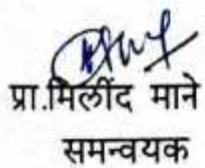 प्रा.मिलींद माने
समन्वयक